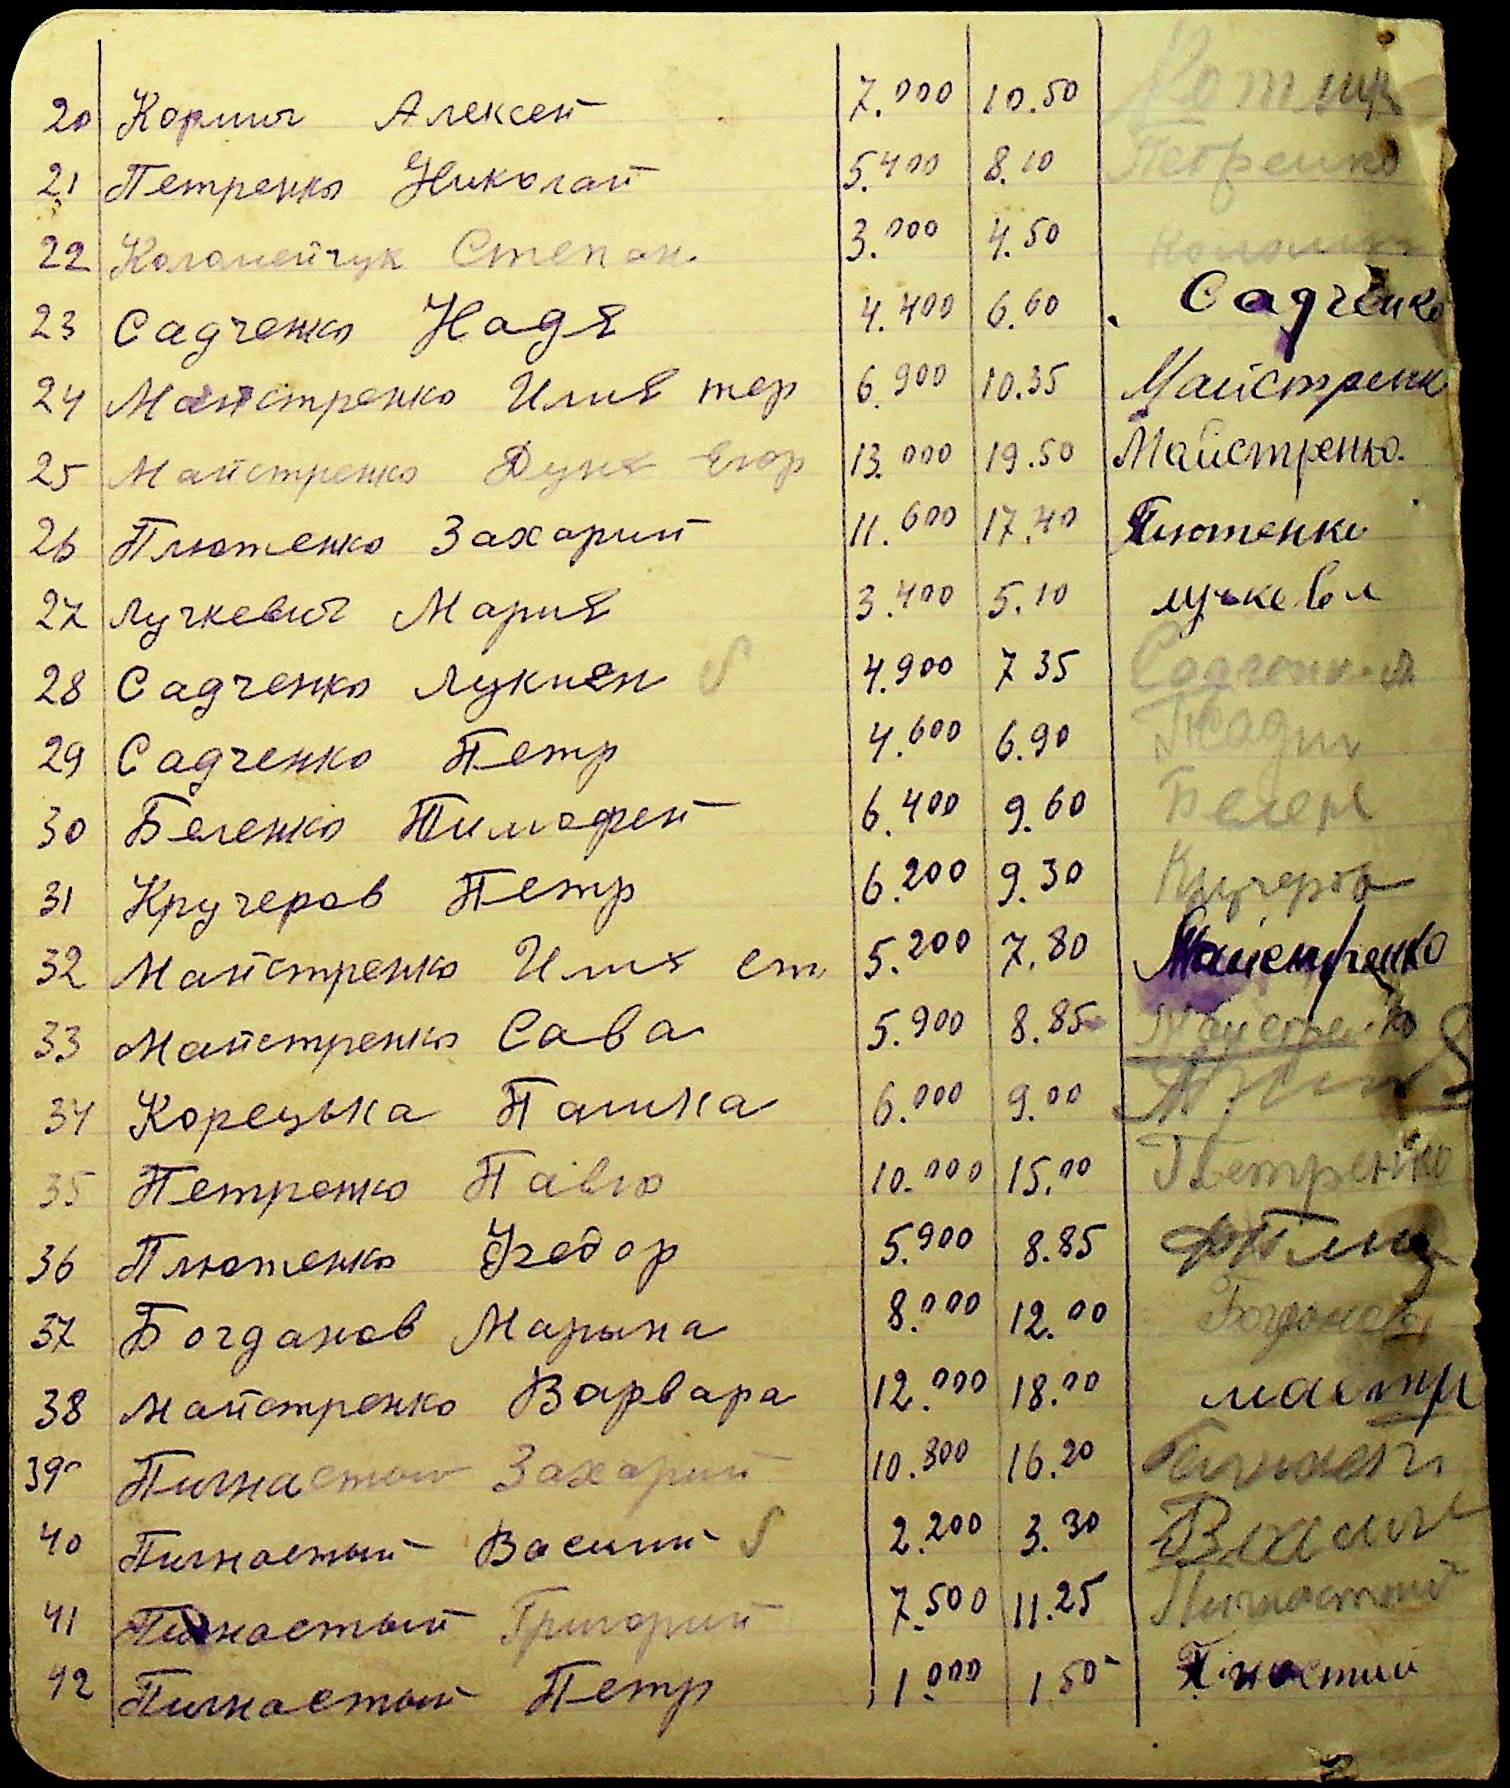 20 Кормич Алексей 7.000 10.50
21 Петренко Николай 5.400 8.10 Петренко
22 Коломейчук Степан 3.000 4.50
23 Садченко Надя 4.400 6.60 Садченко
24 Майстренко Илия 6.900 10.35 Майстренк
25 Майстренко Дуня Егор 13.000 19.50 Майстренко.
26 Плютенко Захарий 11.600 17.40 Плютенко
27 Лучкевич Мария 3.400 5.10
28 Садченко Лукиян 4.900 7 35
29 Садченко Петр 4.600 6.90
30 Беленко Тимофей 6.400 9.60 Белен
31 Кручеров Петр 6.200 9.30
32 Майстренко Илия ст 5.200 7.80 Майстренко
33 Майстренко Сава 5.900 8.85 Майстренко
34 Корецька Пашка 6.000 9.00
35 Петренко Павло 10.000 15.00 Петренко
36 Плютенко Федор 5.900 8.85
37 Богданов Марына 8.000 12.00
38 Майстренко Варвара 12.000 18.00 мастр
39 Пигнастый Захарий 10.800 16.20
40 Пигнастый Василий 2.200 3.30
41 Пигнастый Григорий 7.500 11.25 Пигнастий
42 Пигнастый Петр 1.000 1.50